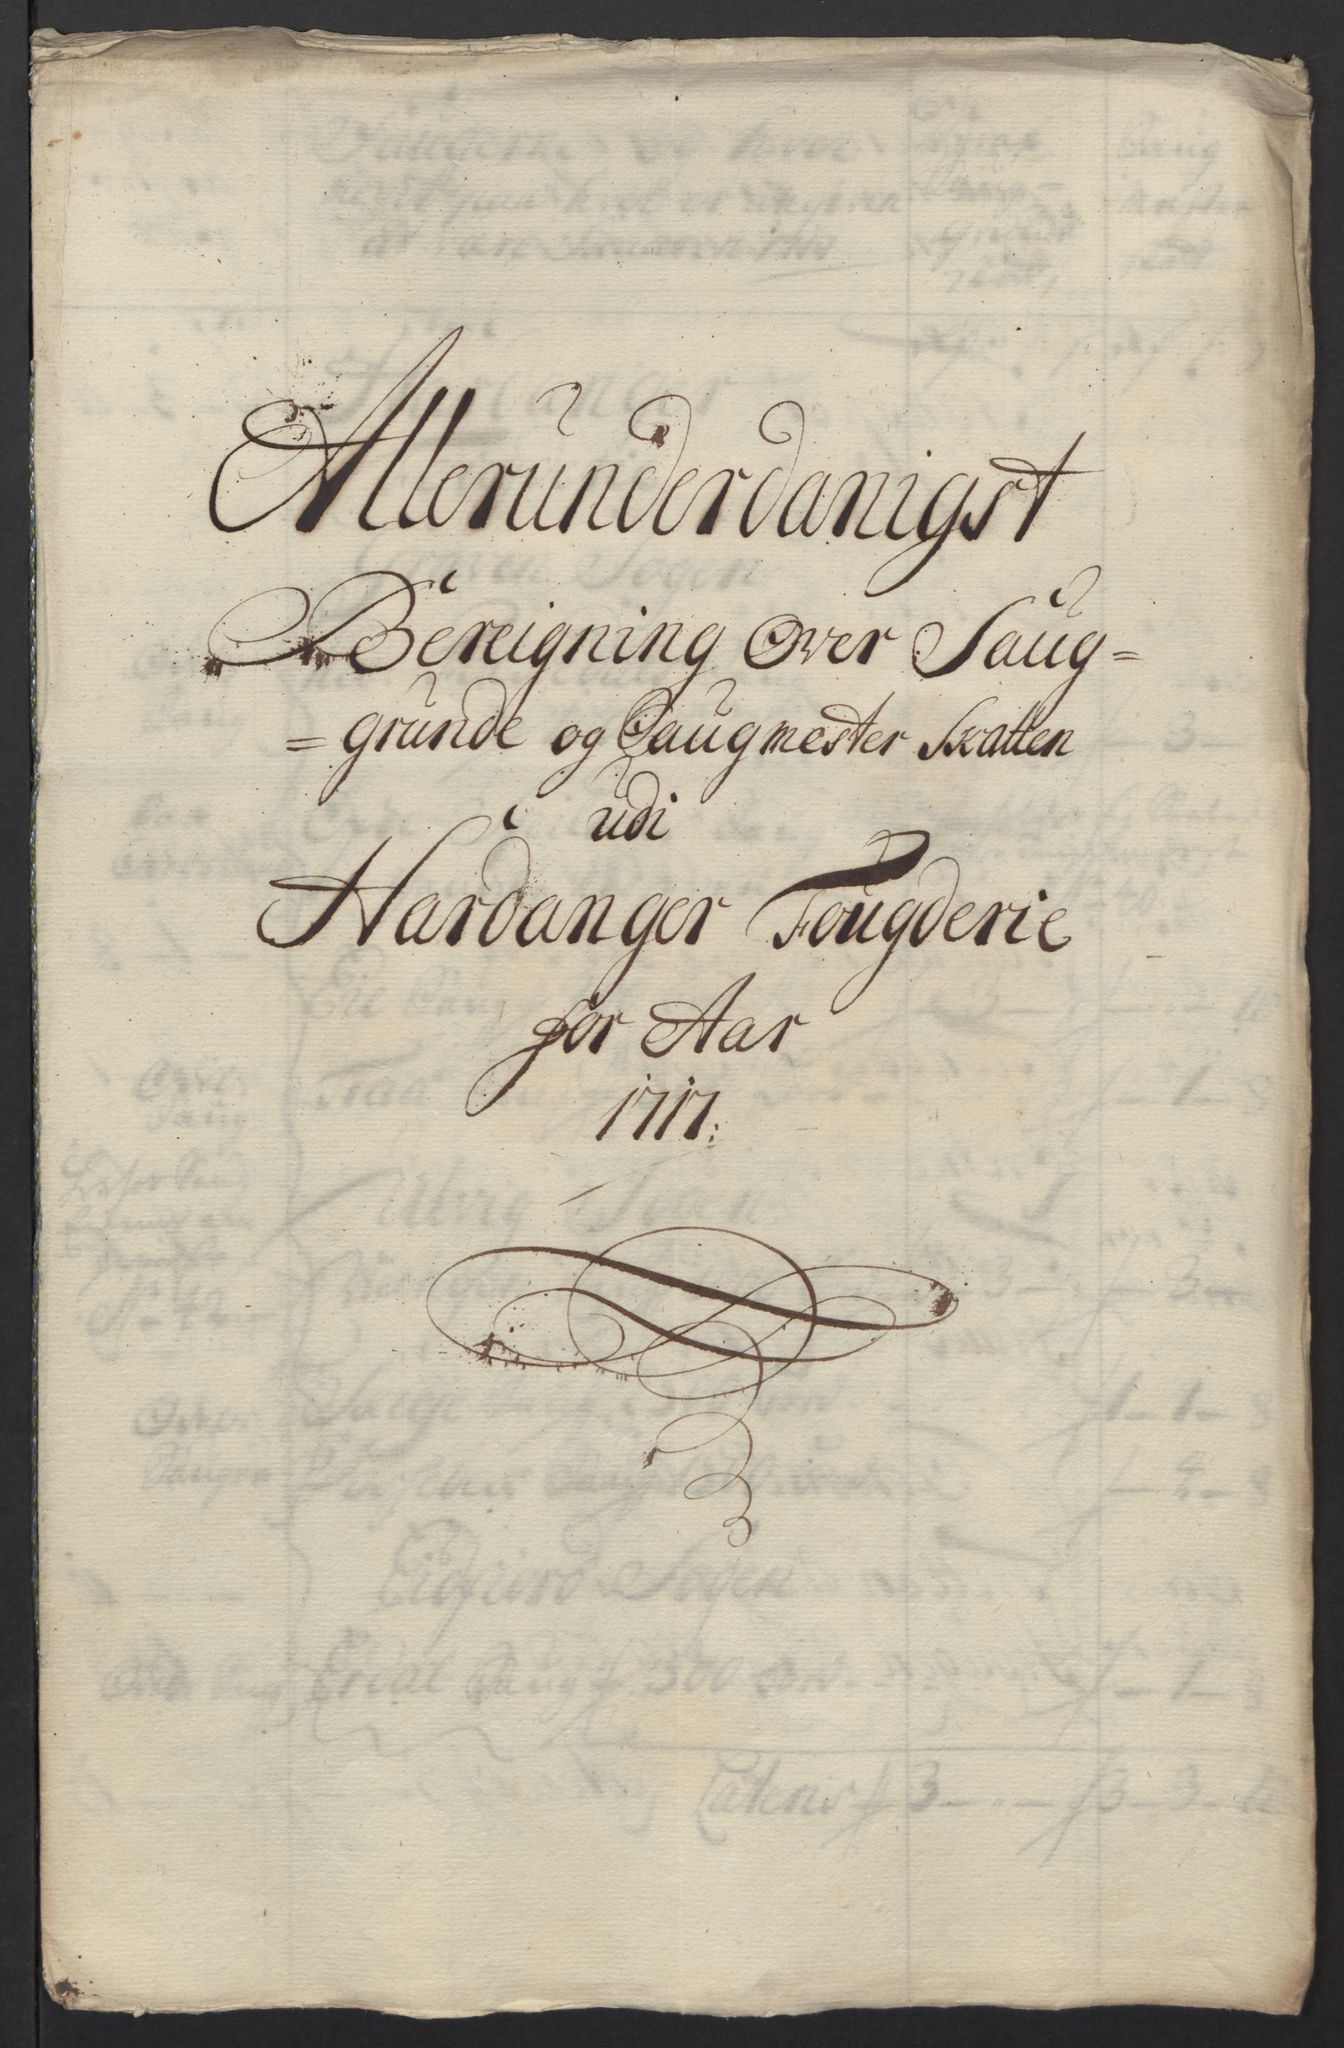 Allerunderdanigst
Bereigning Over Saug=
=grunde og Saugmester Skatten
udi
Hardanger Fougderie
for Aar
1717: